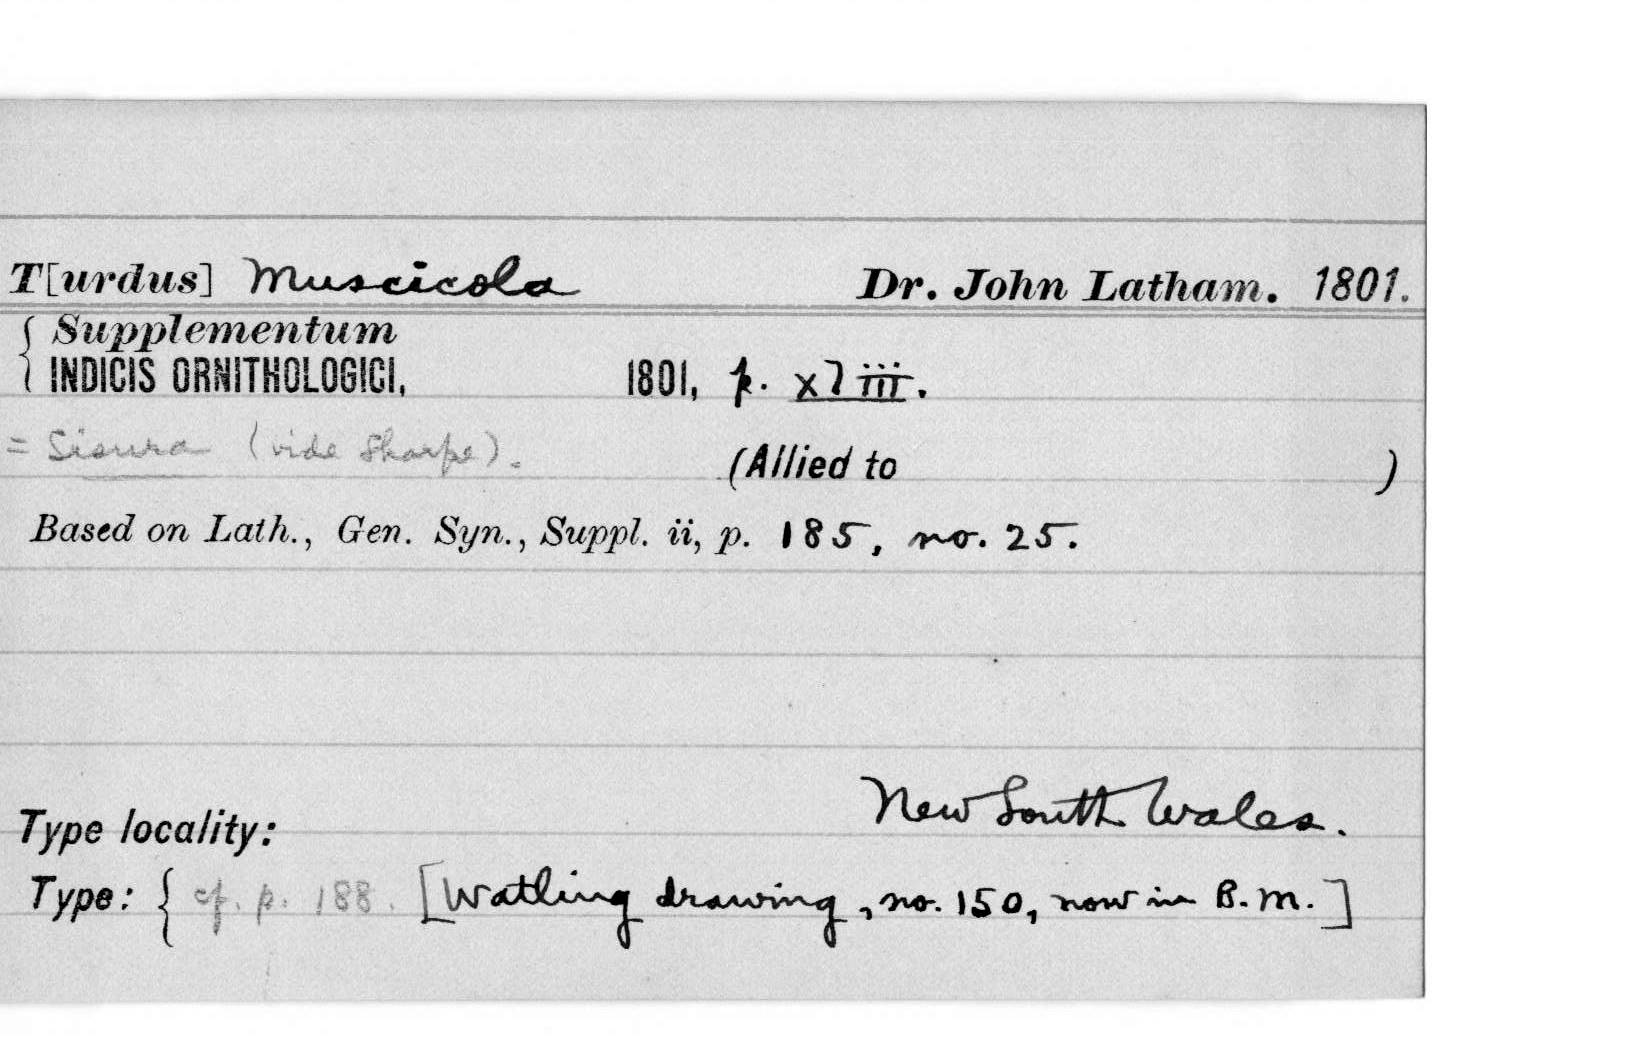 T[urdus] Muscicola Dr. John Latham. 1801.
{ Supplementum
INDICIS ORNITHOLOGICI, 1801, p. xliii.
= Sisura (vide Sharpe). (Allied to )
Based on Lath., Gen. Syn., Suppl. ii, p. 185, no. 25.
New South Wales.
Type locality:
Type: { cf. p. 188. [Watling drawing, no. 150, now in B.M.]